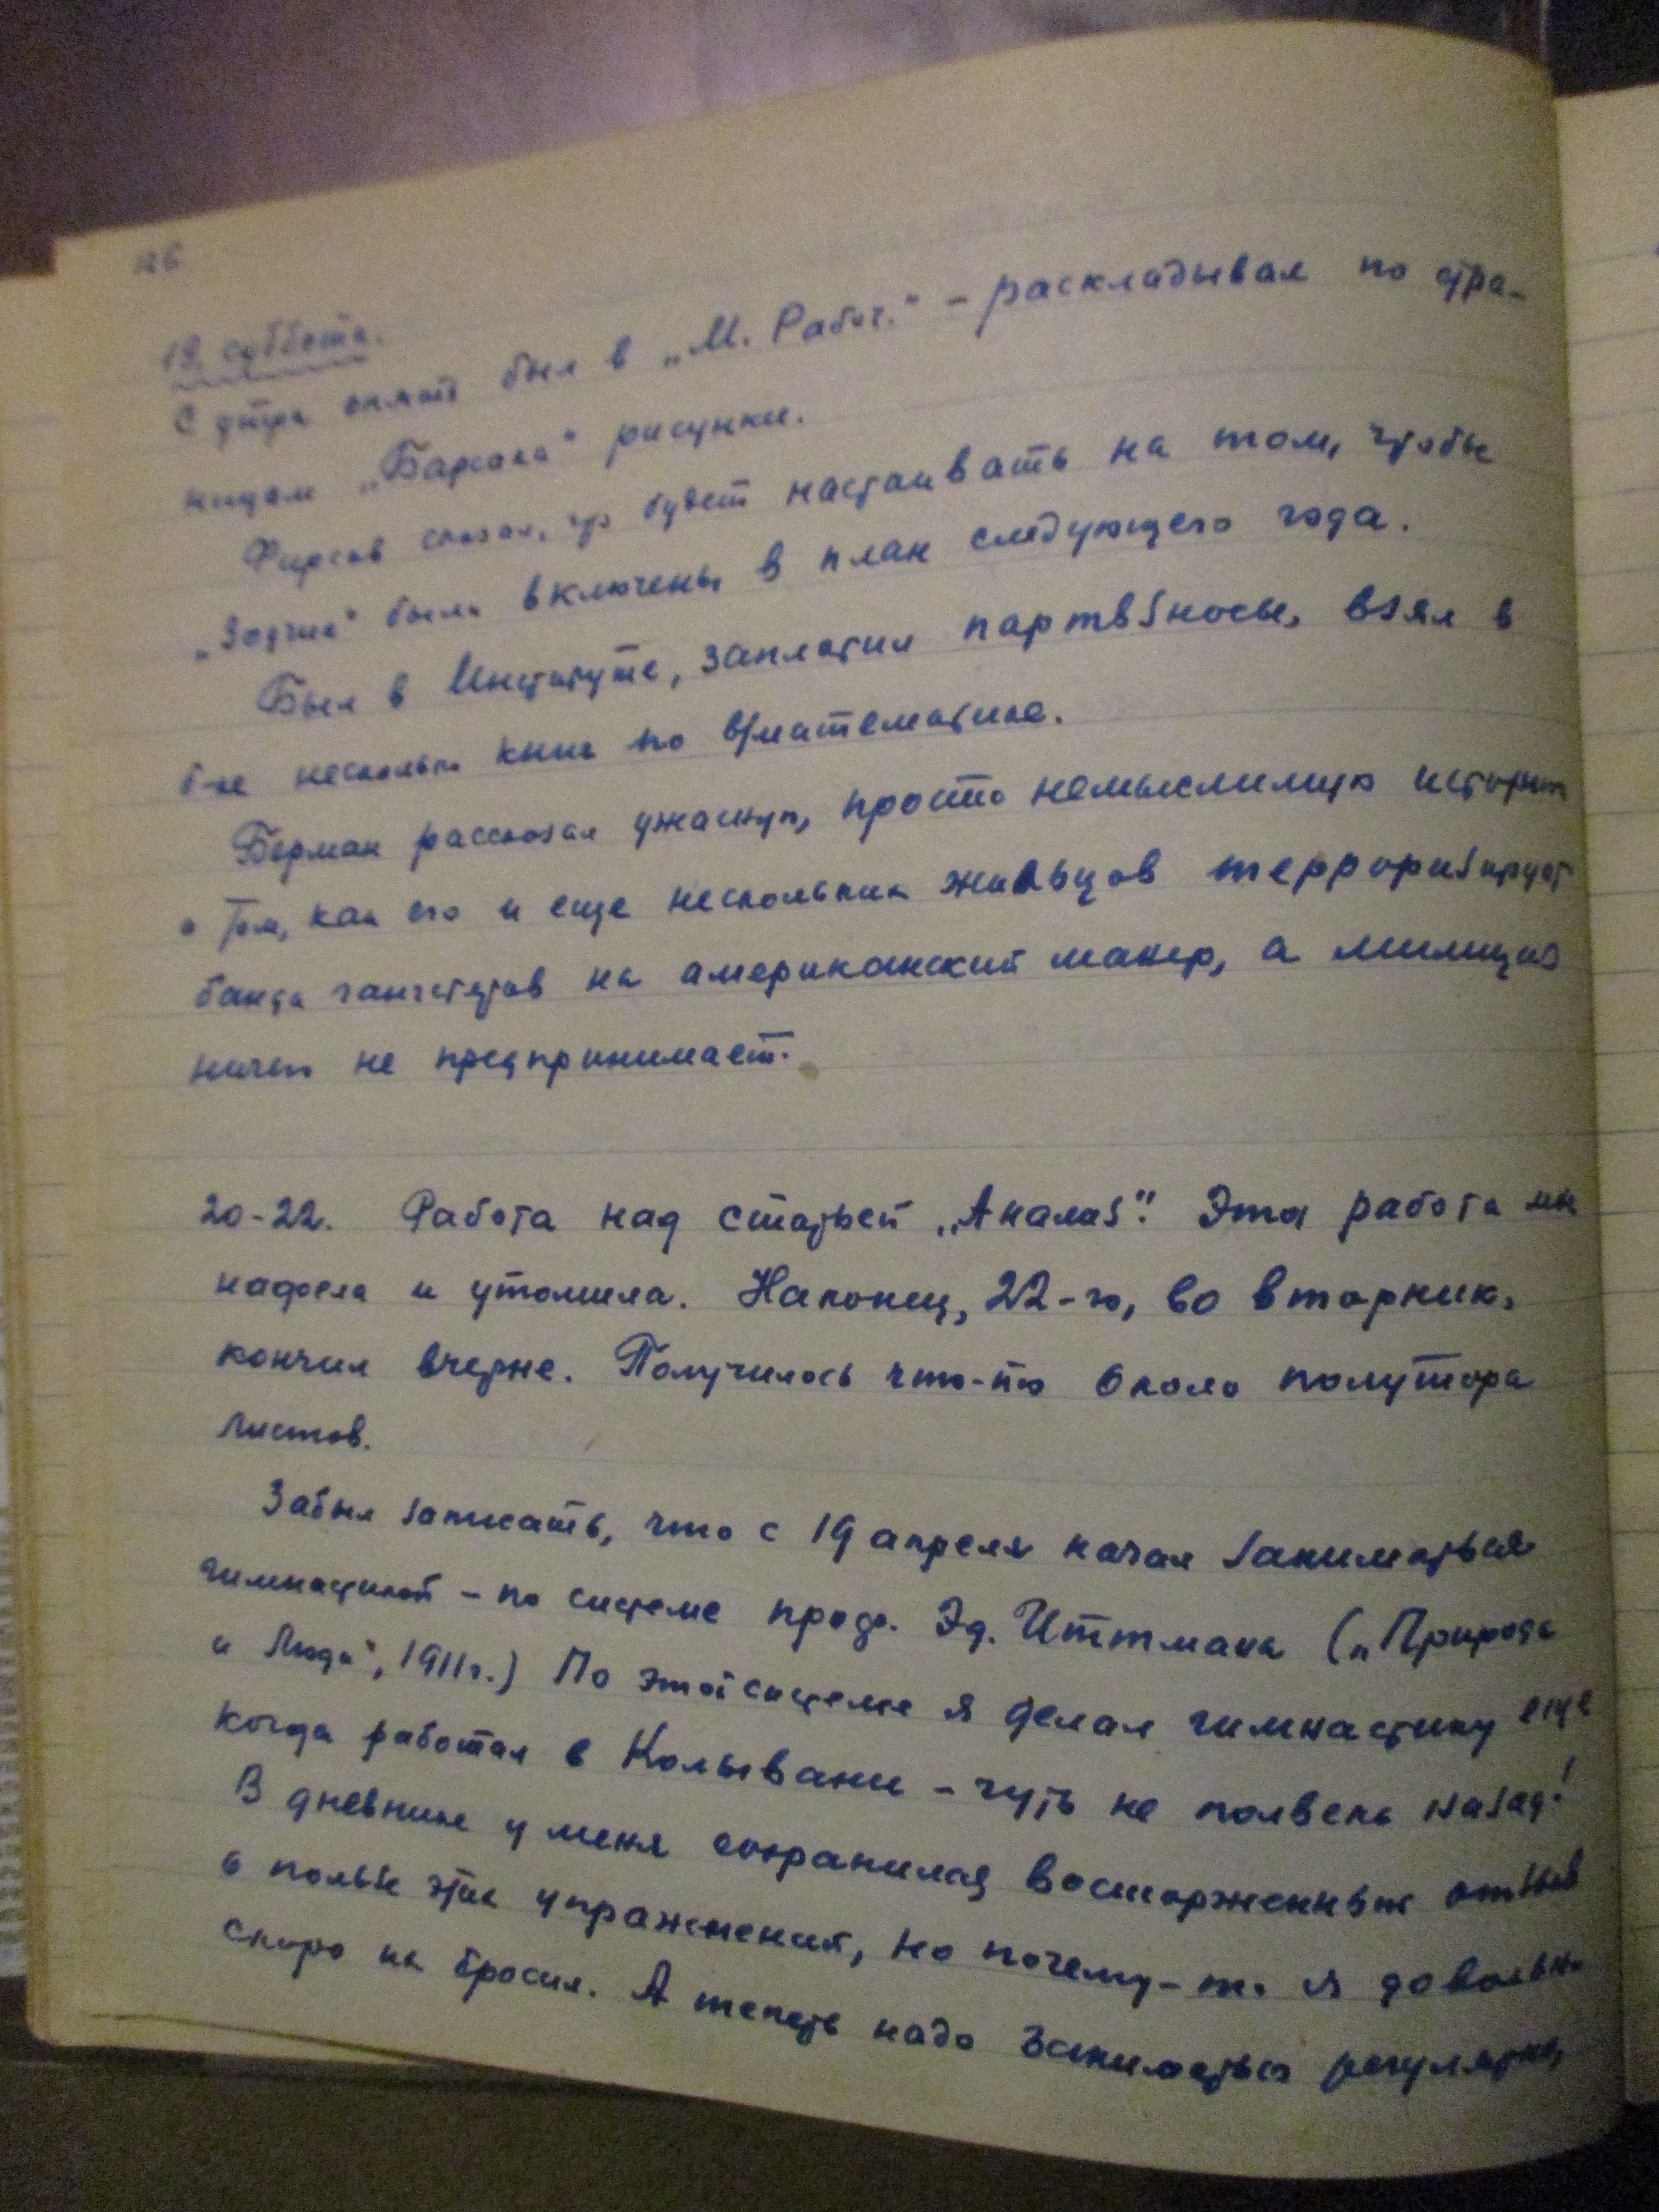 126
19, суббота.
С утра опять был в „М. Рабоч.“ – раскладывал по стра-
ницам „Барсака“ рисунки.
Фирсов сказал, что будет настаивать на том, чтобы
„Зодчие“ были включены в план следующего года.
Был в Институте, заплатил партвзносы, взял в
б-ке несколько книг по в/математике.
Берман рассказал ужасную, просто немыслимую историю
о том, как его и еще нескольких жильцов терроризирует
банда гангстеров на американский манер, а милиция
ничего не предпринимает.
20-22. Работа над статьей „Анализ“. Эта работа мне
надоела и утомила. Наконец, 22-го, во вторник,
кончил вчерне. Получилось что-то около полутора
листов.
Забыл записать, что с 19 апреля начал заниматься
гимнастикой – по системе проф. Эд. Иттмана („Природа
и Люди“, 1911г.) По этой системе я делал гимнастику еще
когда работал в Колывани – чуть не полвека назад!
В дневнике у меня сохранился восторженный отзыв
о пользе этих упражнений, но почему-то я довольно
скоро их бросил. А теперь надо заниматься регулярно,